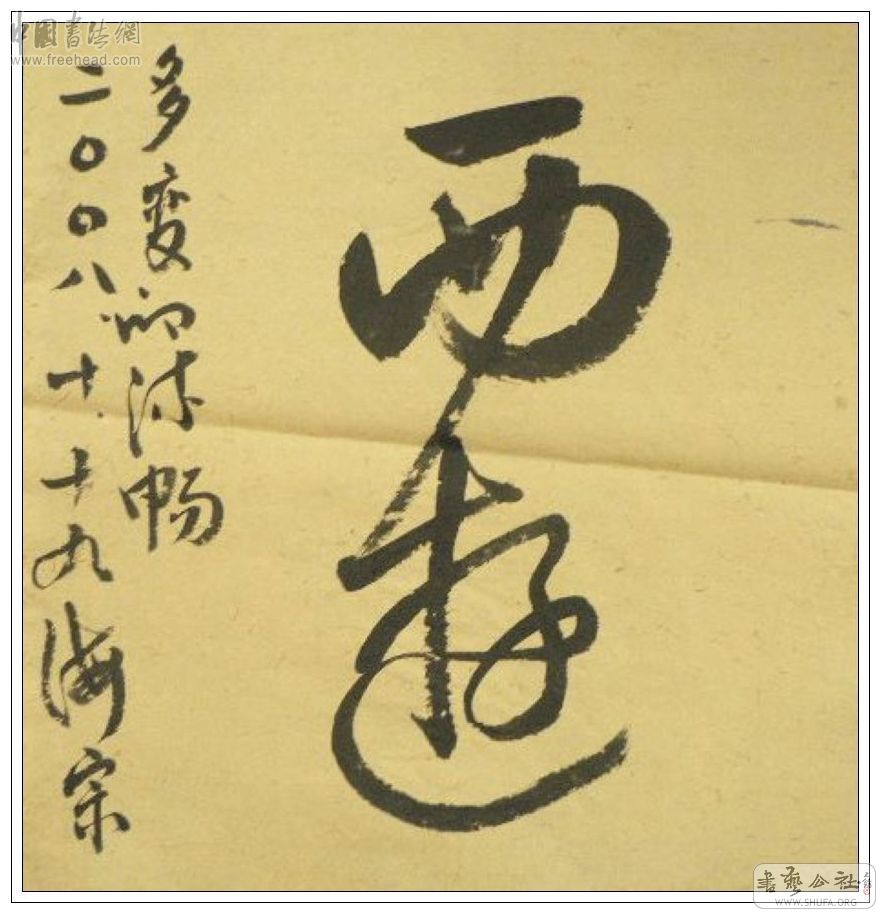 中国书法網
www.freehead.com
西遊
多变的流畅
二〇〇八.十.十九海宗
書藝公社
WWW.SHUFA.ORG